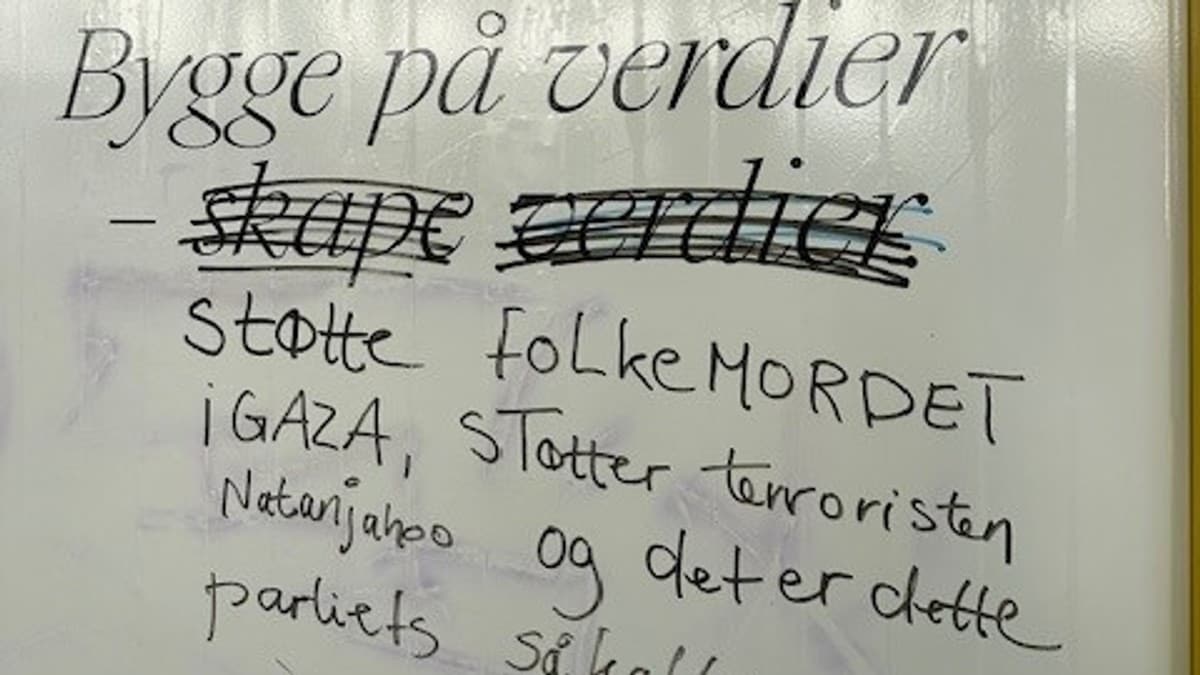 Bygge på verdier
– skape verdier
støtte folkeMORDET
i GAZA, støtter terroristen
Natanjahoo og det er dette
partiets